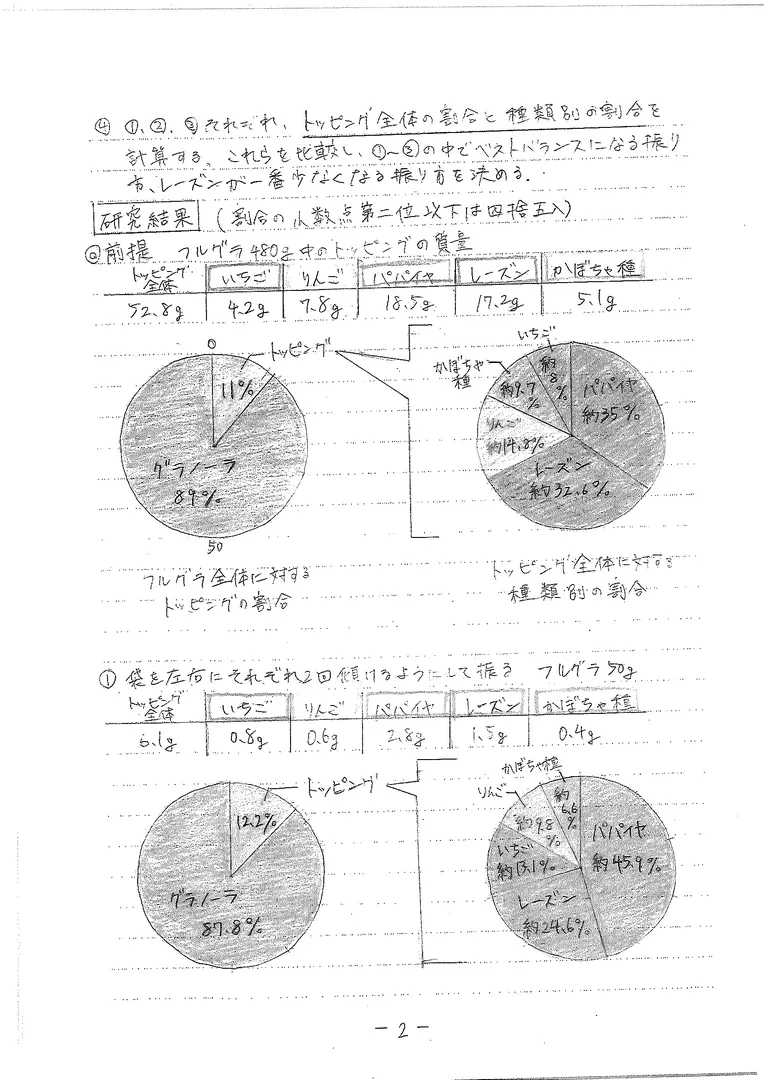 ④ ①、②、③それぞれ、トッピング全体の割合と種類別の割合を
計算する。これらを比較し、①～③の中でベストバランスになる振り
方、レーズンが一番少なくなる振り方を決める。
研究結果 (割合の小数点第二位以下は四捨五入)
◎前提 フルグラ480g中のトッピングの質量
トッピング全体 いちご りんご パパイヤ レーズン かぼちゃ種
52.8g 4.2g 7.8g 18.5g 17.2g 5.1g
0
トッピング
11%
グラノーラ
89%
50
いちご
約8%
かぼちゃ種
約9.7%
りんご
約14.8%
パパイヤ
約35%
レーズン
約32.6%
フルグラ全体に対する
トッピングの割合
トッピング全体に対する
種類別の割合
① 袋を左右にそれぞれ2回傾けるようにして振る フルグラ50g
トッピング全体 いちご りんご パパイヤ レーズン かぼちゃ種
6.1g 0.8g 0.6g 2.8g 1.5g 0.4g
トッピング
12.2%
グラノーラ
87.8%
かぼちゃ種
約6.6%
りんご
約9.8%
いちご
約13.1%
パパイヤ
約45.9%
レーズン
約24.6%
-2-